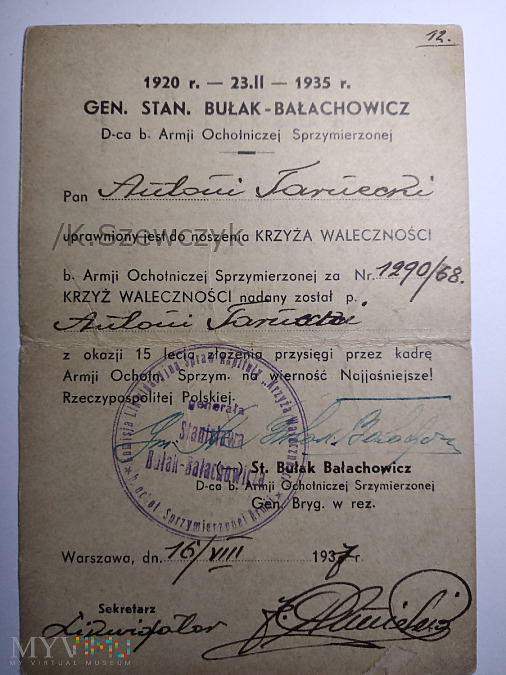 12.
1920 r. — 23.II — 1935 r.
GEN. STAN. BUŁAK-BAŁACHOWICZ
D-ca b. Armji Ochotniczej Sprzymierzonej
Pan Antoni Tarnecki
/K.Szewczyk
uprawniony jest do noszenia KRZYŻA WALECZNOŚCI
b. Armji Ochotniczej Sprzymierzonej za Nr. 1290/68.
KRZYŻ WALECZNOŚCI nadany został p.
Antoni
z okazji 15 lecia złożenia przysięgi przez kadrę
Armji Ochotn. Sprzym. na wierność Najjaśniejszej
Rzeczypospolitej Polskiej.
generała
Stanisława
Bułak-Bałachowicza
(—) St. Bułak Bałachowicz
D-ca b. Armji Ochotniczej Srzymierzonej
Gen. Bryg. w rez.
Warszawa, dn. 16/VIII 1937 r.
Sekretarz
Likwidator
MYVIMU
MY VIRTUAL MUSEUM